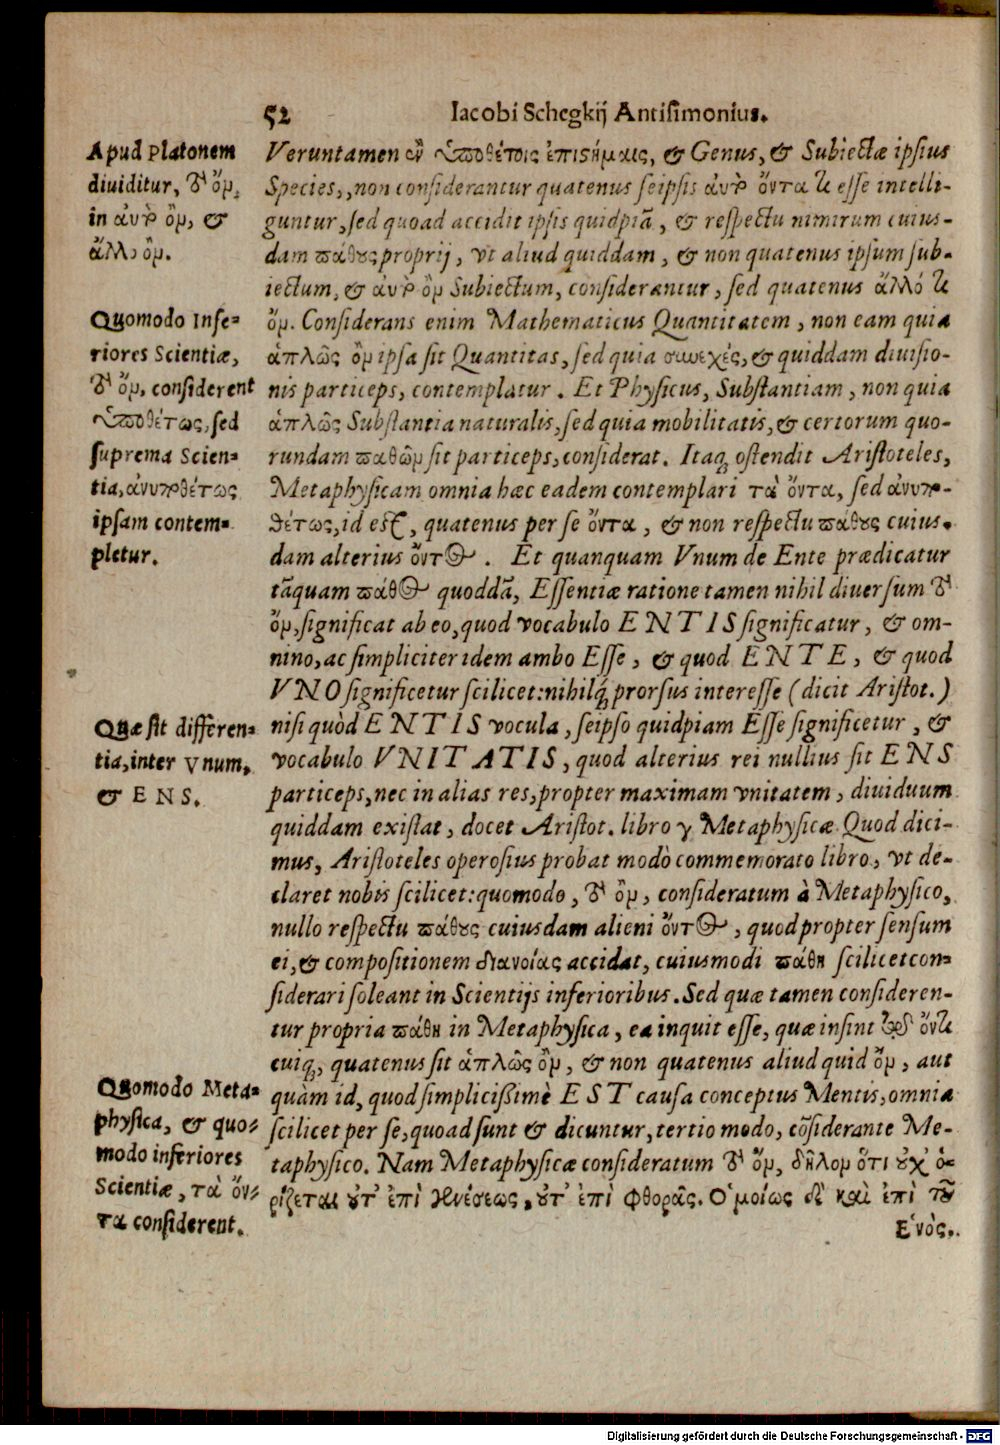 52 Iacobi Schegkij Antisimonius.
Apud Platonem
diuiditur, τὸ ὄν,
in αὐτὸ ὂν, &
ἄλλο ὂν.
Quomodo Infe-
riores Scientiæ,
τὸ ὄν, considerent
ὑποθέτως, sed
suprema Scien-
tia, ἀνυποθέτως
ipsam contem-
pletur.
Quæ sit differen-
tia, inter Vnum,
& ENS.
Quomodo Meta-
physica, & quo-
modo inferiores
Scientiæ, τὰ ὄν-
τα considerent.
Veruntamen ἐν ὑποθέτοις ἐπιστήμαις, & Genus, & Subiectæ ipsius
Species,, non considerantur quatenus seipsis αὐτὸ ὄντα τε esse intelli-
guntur, sed quoad accidit ipsis quidpiã, & respectu nimirum cuius-
dam πάθους proprij, vt aliud quiddam, & non quatenus ipsum sub-
iectum, & αὐτὸ ὂν Subiectum, considerantur, sed quatenus ἄλλό τε
ὄν. Considerans enim Mathematicus Quantitatem, non eam quia
ἁπλῶς ὂν ipsa sit Quantitas, sed quia συνεχές, & quiddam diuisio-
nis particeps, contemplatur. Et Physicus, Substantiam, non quia
ἁπλῶς Substantia naturalis, sed quia mobilitatis, & certorum quo-
rundam παθῶν sit particeps, considerat. Itaq; ostendit Aristoteles,
Metaphysicam omnia hæc eadem contemplari τὰ ὄντα, sed ἀνυπο-
θέτως, id est, quatenus per se ὄντα, & non respectu πάθους cuius-
dam alterius ὄντος. Et quanquam Vnum de Ente prædicatur
tãquam πάθος quoddã, Essentiæ ratione tamen nihil diuersum τὸ
ὄν, significat ab eo, quod vocabulo ENTIS significatur, & om-
nino, ac simpliciter idem ambo Esse, & quod ENTE, & quod
VNO significetur scilicet: nihilq́; prorsus interesse (dicit Aristot.)
nisi quòd ENTIS vocula, seipso quidpiam Esse significetur, &
vocabulo VNITATIS, quod alterius rei nullius sit ENS
particeps, nec in alias res, propter maximam vnitatem, diuiduum
quiddam existat, docet Aristot. libro γ Metaphysicæ. Quod dici-
mus, Aristoteles operosius probat modò commemorato libro, vt de-
claret nobis scilicet: quomodo, τὸ ὂν, consideratum à Metaphysico,
nullo respectu πάθους cuiusdam alieni ὄντος, quod propter sensum
ei, & compositionem διανοίας accidat, cuiusmodi πάθη scilicet con-
siderari soleant in Scientijs inferioribus. Sed quæ tamen consideren-
tur propria πάθη in Metaphysica, ea inquit esse, quæ insint ὄντι
cuiq;, quatenus sit ἁπλῶς ὂν, & non quatenus aliud quid ὂν, aut
quàm id, quod simplicißimè EST causa conceptus Mentis, omnia
scilicet per se, quoad sunt & dicuntur, tertio modo, cõsiderante Me-
taphysico. Nam Metaphysicæ consideratum τὸ ὂν, δῆλον ὅτι οὐχ ὁ-
ρίζεται οὔτ' ἐπὶ γενέσεως, οὔτ' ἐπὶ φθορᾶς. Ὁμοίως δὲ καὶ ἐπὶ τοῦ
Ἑνὸς..
Digitalisierung gefördert durch die Deutsche Forschungsgemeinschaft - DFG